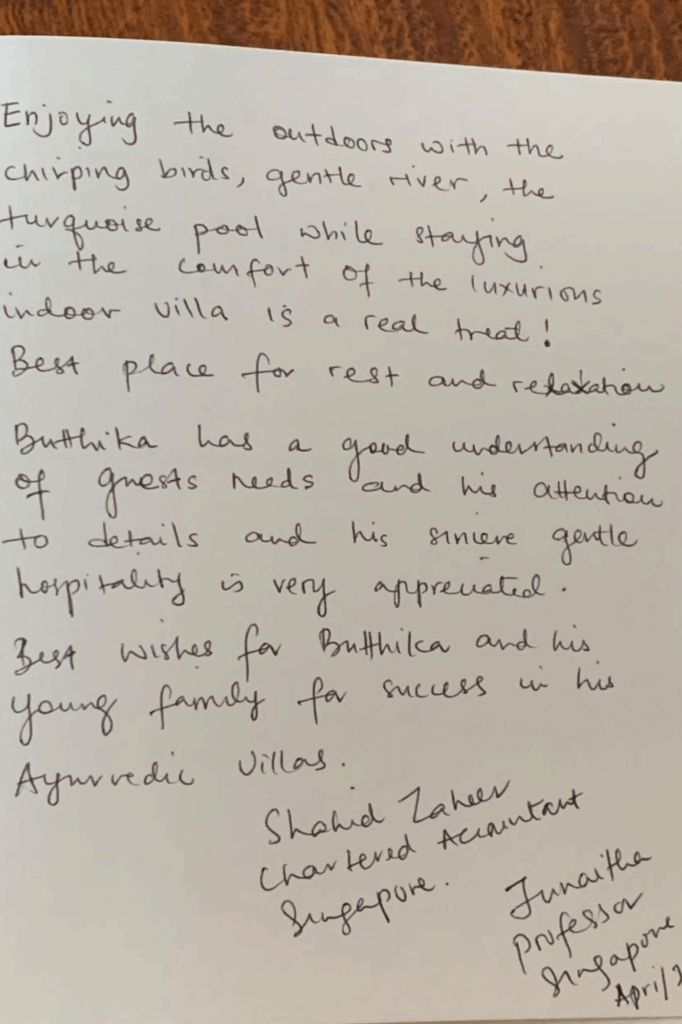 Enjoying the outdoors with the
chirping birds, gentle river, the
turquoise pool while staying
in the comfort of the luxurious
indoor villa is a real treat!
Best place for rest and relaxation
Butthika has a good understanding
of guests needs and his attention
to details and his sincere gentle
hospitality is very appreciated.
Best wishes for Butthika and his
young family for success in his
Ayurvedic Villas.
Shahid Zaheer
Chartered Accountant
Singapore.
Junaitha
Professor
Singapore
April/